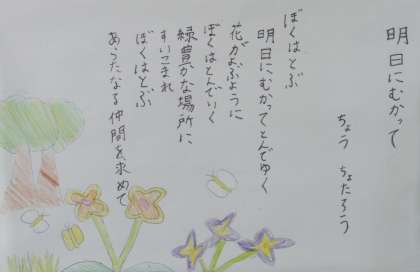 明日にむかって
ちょう ちょたろう
ぼくはとぶ
明日にむかってとんでゆく
花がよぶように
ぼくはとんでいく
緑豊かな場所に
すいこまれ
ぼくはとぶ
あらたなる仲間を求めて